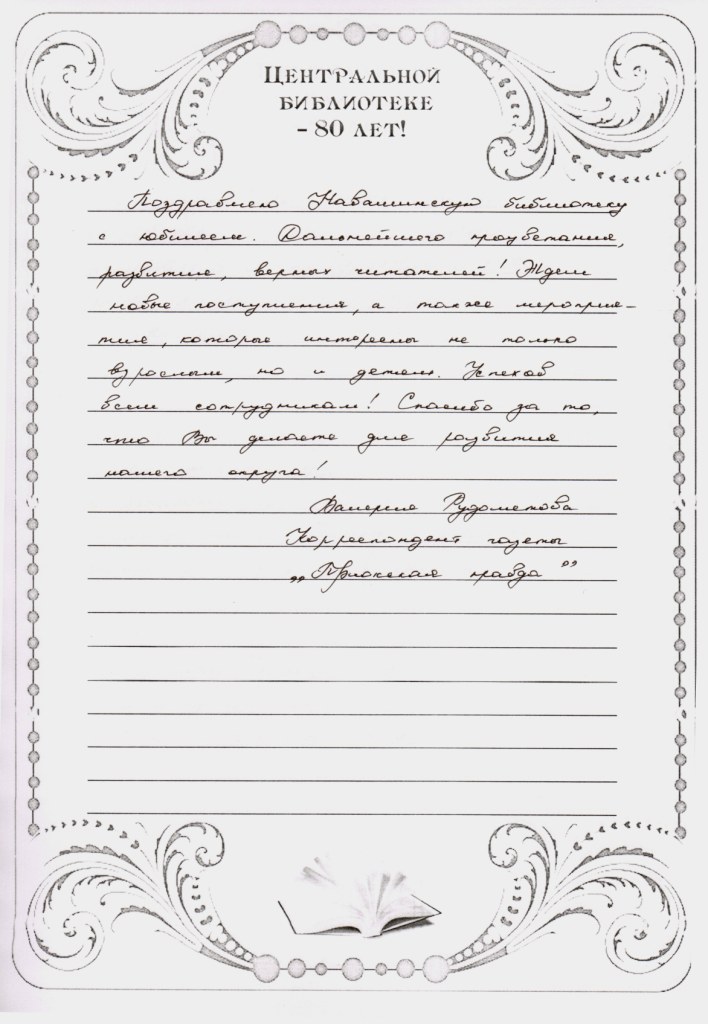 ЦЕНТРАЛЬНОЙ
БИБЛИОТЕКЕ
- 80 ЛЕТ!
Поздравляю Навашинскую библиотеку
с юбилеем. Дальнейшего процветания,
развития, верных читателей! Ждем
новые поступления, а также мероприя-
тия, которые интересны не только
взрослым, но и детям. Успехов
всем сотрудникам! Спасибо за то,
что Вы делаете для развития
нашего округа!
Валерия Рудометова
Корреспондент газеты
„Приокская правда”